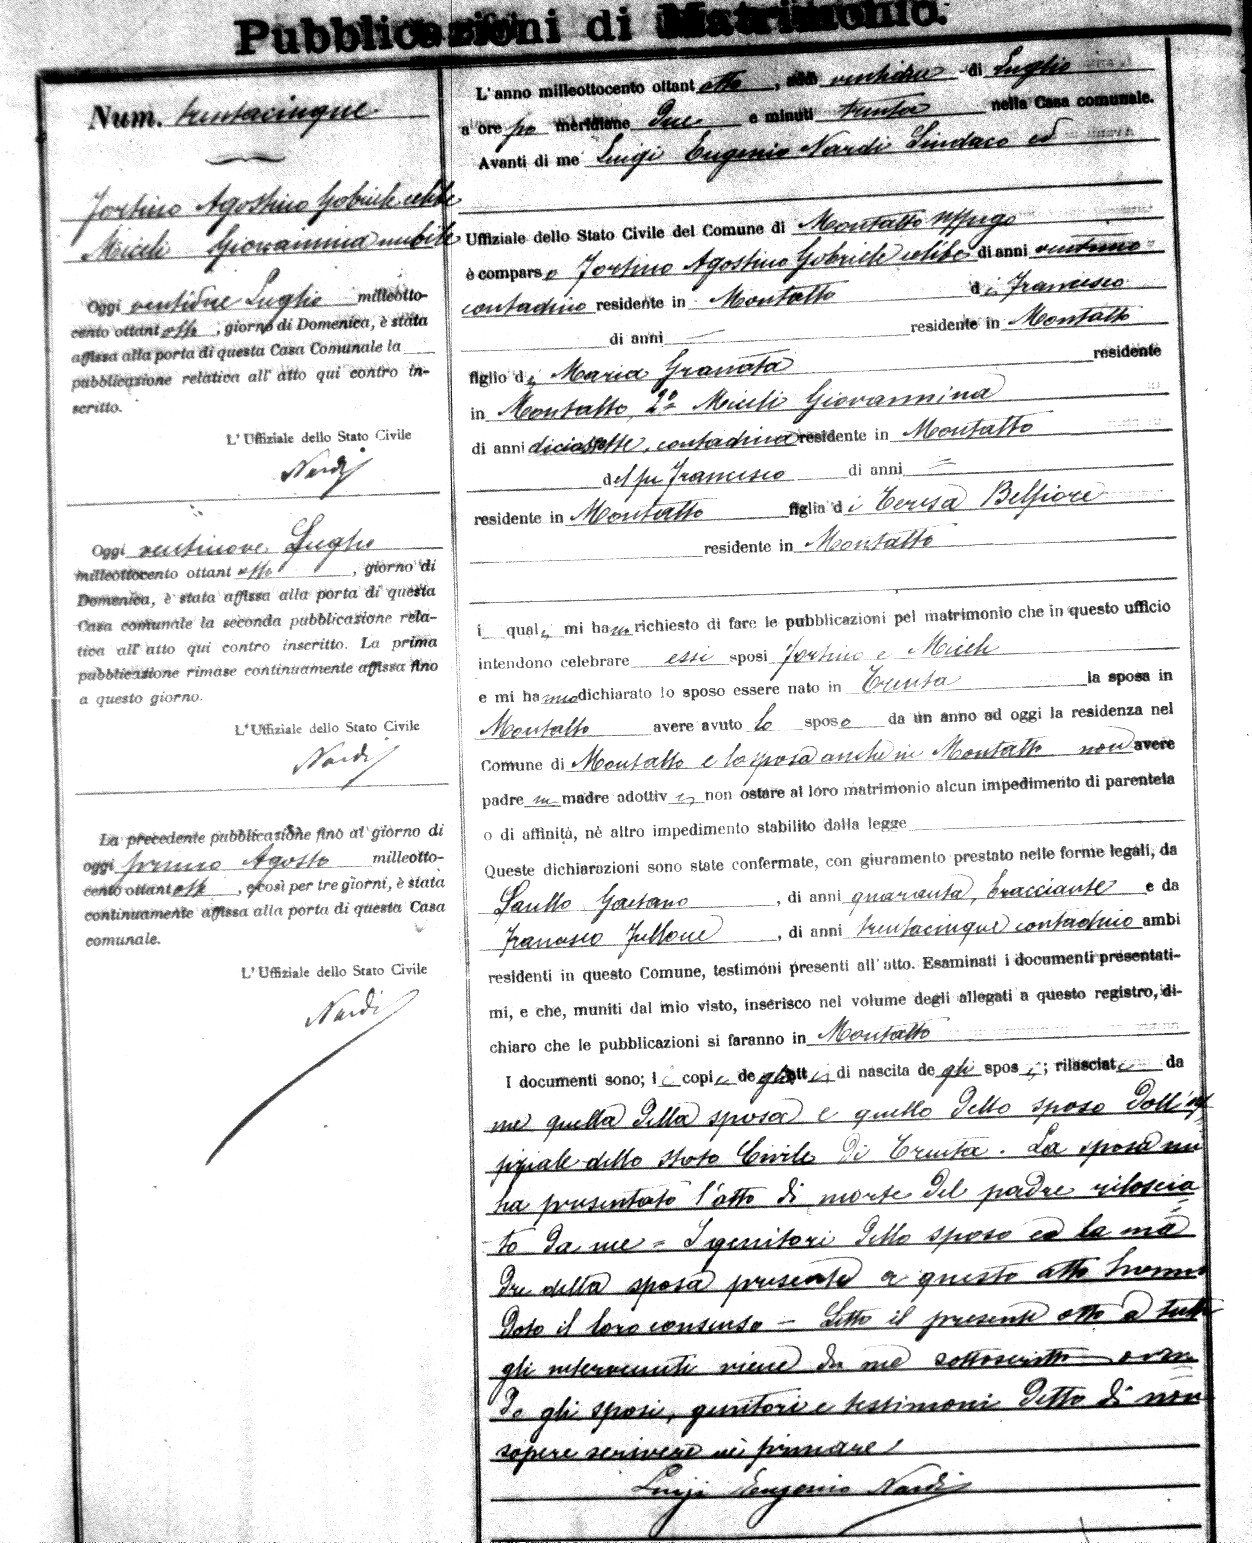 Pubblicazioni di Matrimonio.
Num. trentacinque
Fortino Agostino Gabriele celibe
Miceli Giovannina nubile
Oggi ventidue Luglio milleotto-
cento ottantotto, giorno di Domenica, è stata
affissa alla porta di questa Casa Comunale la
pubblicazione relativa all' atto qui contro in-
scritto.
L' Uffiziale dello Stato Civile
Nardi
Oggi ventinove Luglio
milleottocento ottantotto, giorno di
Domenica, è stata affissa alla porta di questa
Casa comunale la seconda pubblicazione rela-
tiva all' atto qui contro inscritto. La prima
pubblicazione rimase continuamente affissa fino
a questo giorno.
L' Uffiziale dello Stato Civile
Nardi
La precedente pubblicazione fino al giorno di
oggi primo Agosto milleotto-
cento ottantotto, e così per tre giorni, è stata
continuamente affissa alla porta di questa Casa
comunale.
L' Uffiziale dello Stato Civile
Nardi
L' anno milleottocento ottantotto, addì ventidue di Luglio
a ore po meridiane due e minuti trenta nella Casa comunale.
Avanti di me Luigi Eugenio Nardi Sindaco ed
Uffiziale dello Stato Civile del Comune di Montalto Uffugo
è comparso Fortino Agostino Gabriele celibe di anni ventuno
contadino residente in Montalto di Francesco
di anni residente in Montalto
figlio di Maria Granata residente
in Montalto, 2º Miceli Giovannina
di anni diciassette, contadina residente in Montalto
del fu Francesco di anni =
residente in Montalto figlia di Teresa Belfiore
residente in Montalto
i quali mi hanno richiesto di fare le pubblicazioni pel matrimonio che in questo ufficio
intendono celebrare essi sposi Fortino e Miceli
e mi hanno dichiarato lo sposo essere nato in Trenta la sposa in
Montalto avere avuto lo sposo da un anno ad oggi la residenza nel
Comune di Montalto e la sposa anche in Montalto non avere
padre madre adottivi, non ostare al loro matrimonio alcun impedimento di parentela
o di affinità, nè altro impedimento stabilito dalla legge
Queste dichiarazioni sono state confermate, con giuramento prestato nelle forme legali, da
Gaetano, di anni quaranta, bracciante e da
Francesco, di anni trentacinque contadino ambi
residenti in questo Comune, testimoni presenti all' atto. Esaminati i documenti presentati-
mi, e che, muniti dal mio visto, inserisco nel volume degli allegati a questo registro, di-
chiaro che le pubblicazioni si faranno in Montalto
I documenti sono; le copie degli atti di nascita degli sposi; rilasciate da
me quella della sposa e quello dello sposo dall'uf-
fiziale dello stato Civile di Trenta. La sposa mi
ha presentato l'atto di morte del padre rilascia
to da me = I genitori dello sposo ed la ma
dre della sposa presenti a questo atto hanno
dato il loro consenso - Letto il presente atto a tutti
gli intervenuti viene da me sottoscritto aven
do gli sposi, genitori e testimoni detto di non
sapere scrivere nè firmare.
Luigi Eugenio Nardi